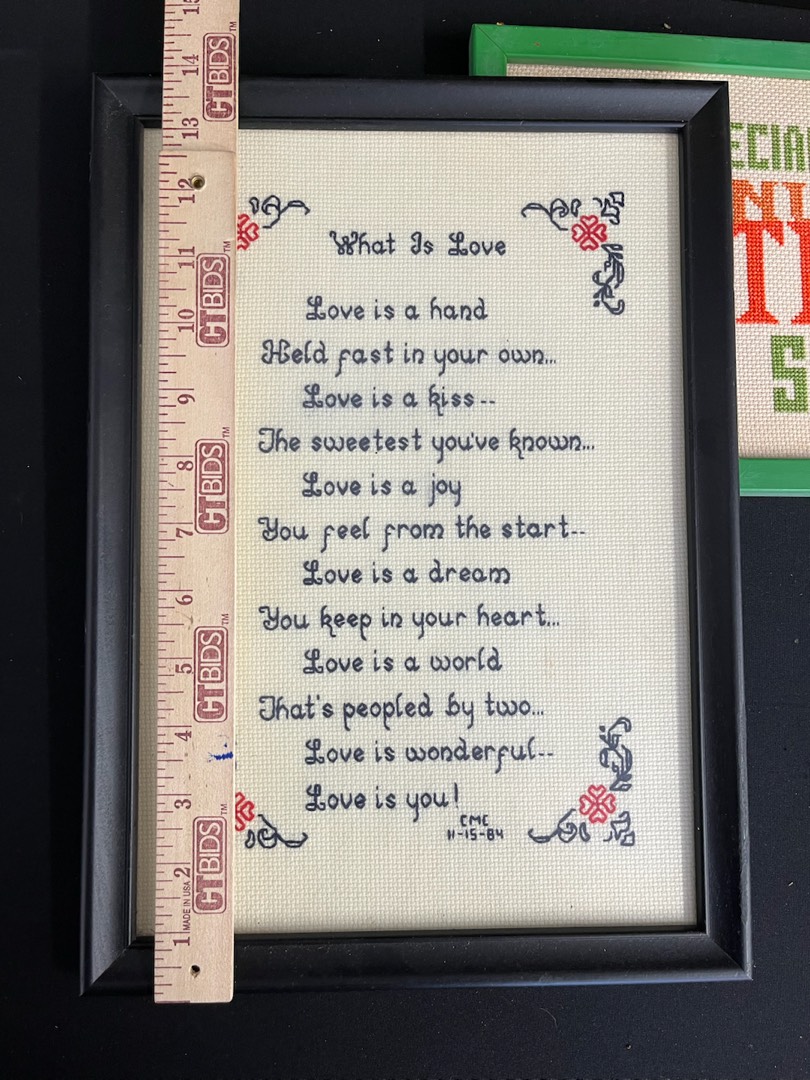 What Is Love
Love is a hand
Held fast in your own...
Love is a kiss--
The sweetest you've known...
Love is a joy
You feel from the start--
Love is a dream
You keep in your heart...
Love is a world
That's peopled by two...
Love is wonderful--
Love is you!
CMC
11-15-84
15
14
CTBIDS™
13
12
11
CTBIDS™
10
9
8
CTBIDS™
7
6
5
CTBIDS™
4
3
CTBIDS™
2
MADE IN USA
1